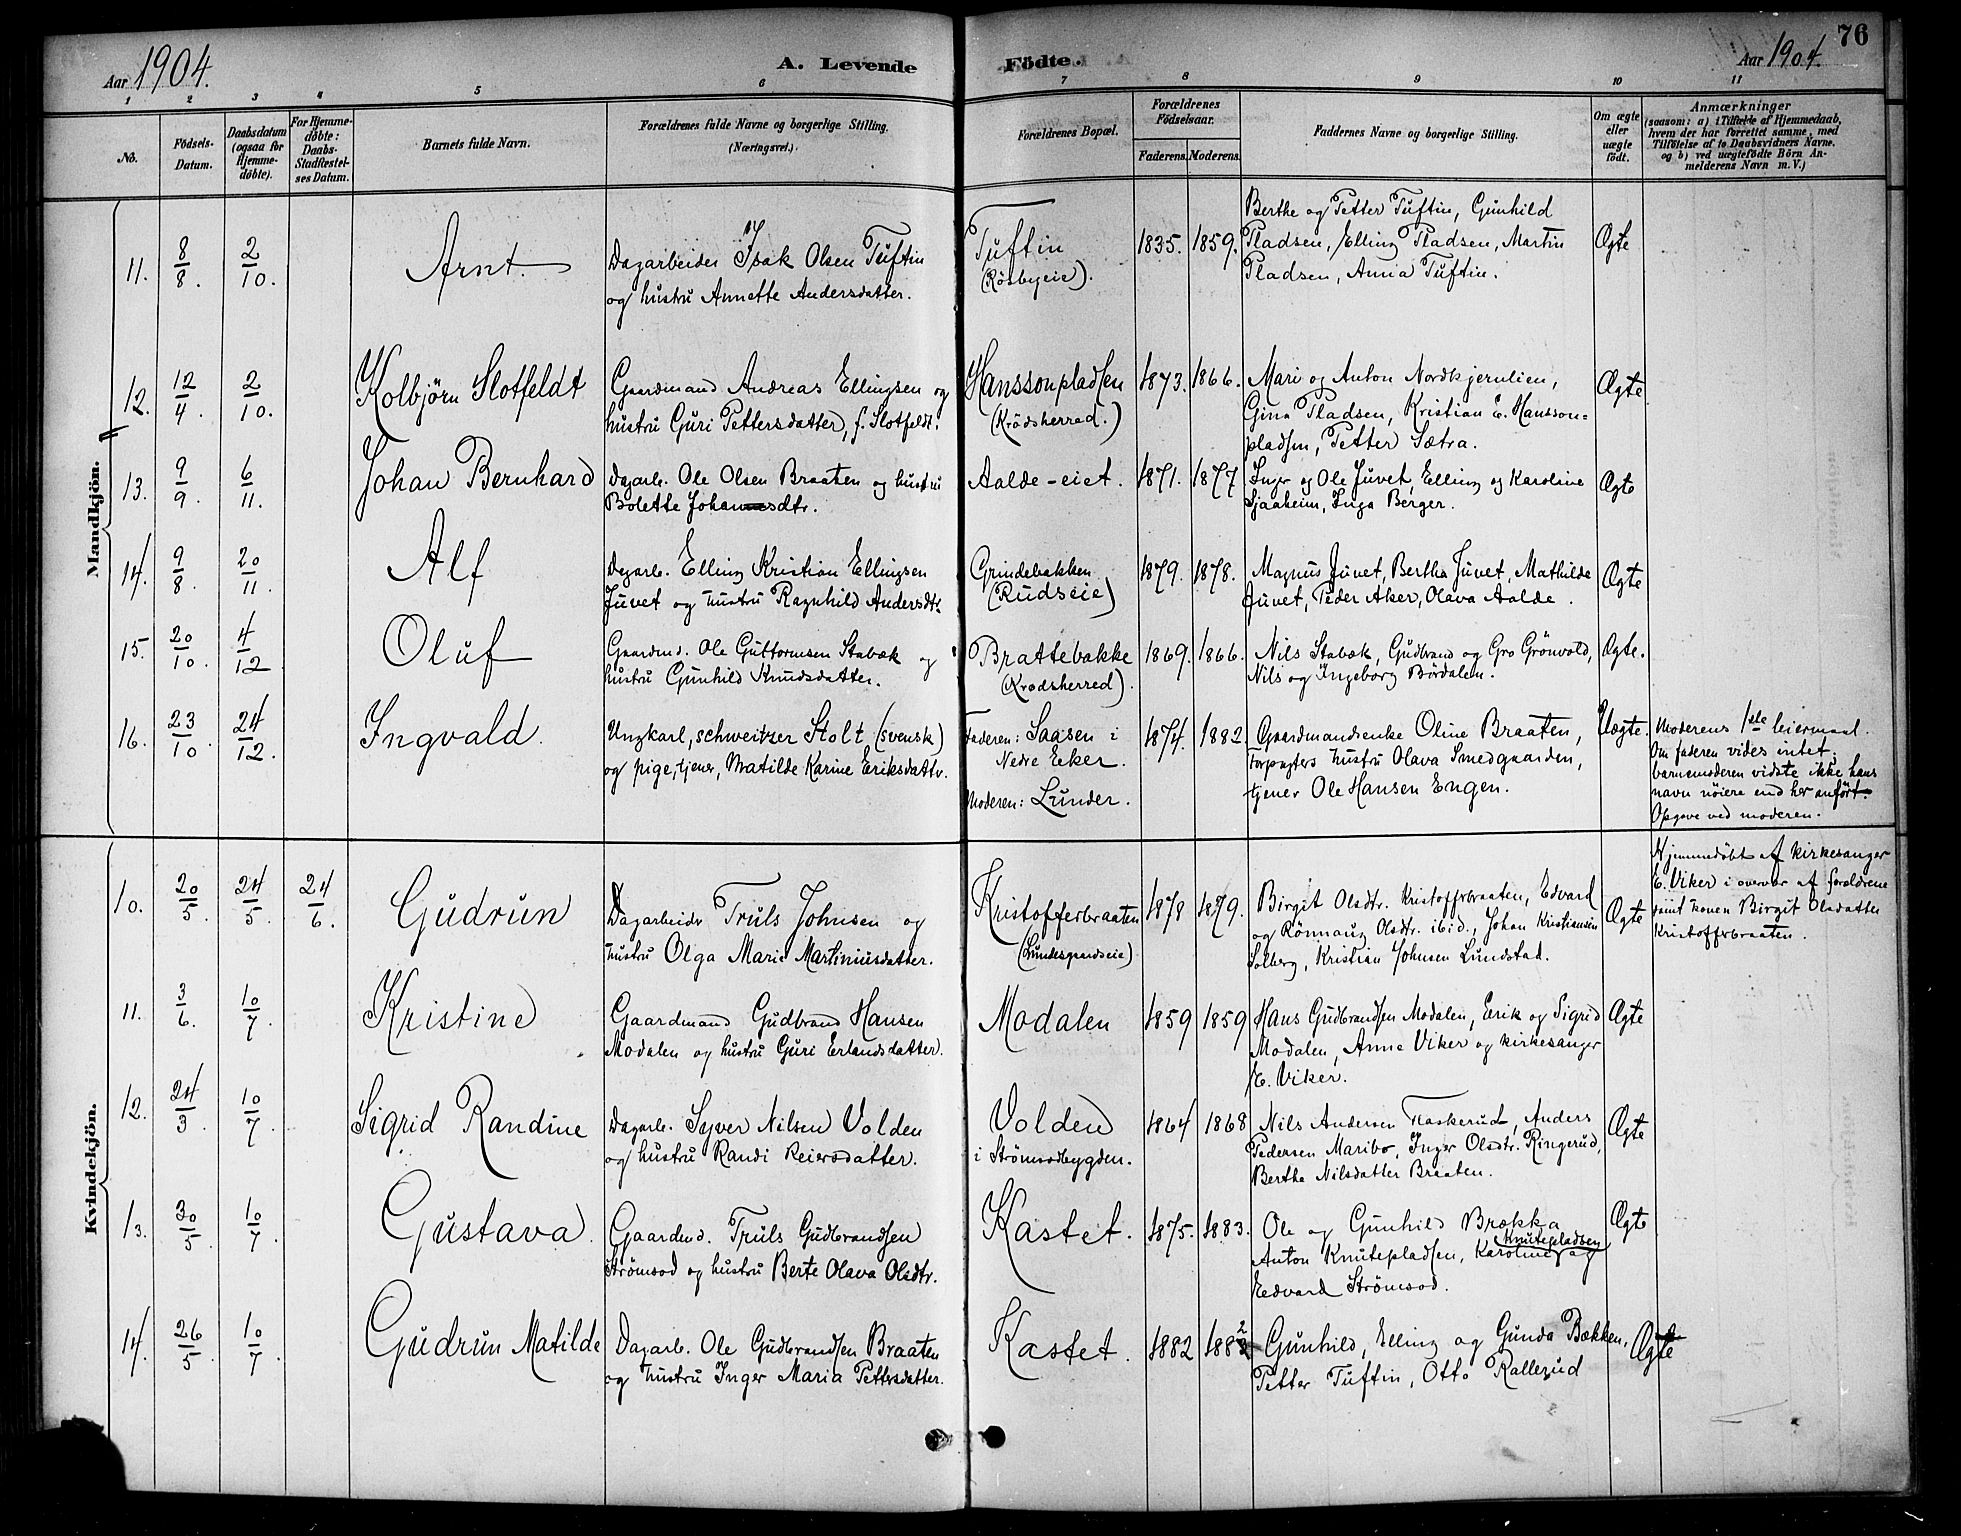 76
Aar 1904.
A. Levende
Födte.
Aar 1904.
1
2
3
4
5
6
7
8
9
10
11
No.
Födsels-
Datum.
Daabsdatum
(ogsaa for
Hjemme-
döbte).
For Hjemme-
döbte:
Daabs-
Stadfæstel-
ses Datum.
Barnets fulde Navn.
Forældrenes fulde Navne og borgerlige Stilling.
(Næringsvei.)
Forældrenes Bopæl.
Forældrenes
Födselsaar.
Faderens.
Moderens.
Faddernes Navne og borgerlige Stilling.
Om ægte
eller
uægte
födt.
Anmærkninger
(saasom: a) i Tilfælde af Hjemmedaab,
hvem der har forrettet samme, med
Tilföielse af to Daabsvidners Navne,
og b) ved uægtefödte Börn An-
melderens Navn m. V.)
Mandkjön.
11.
8/8.
2/10.
Arnt.
Dagarbeider Isak Olsen Tuftin
og hustru Annette Andersdatter.
Tuftin
(Rösbyeie).
1835.
1859.
Berthe og Petter Tuftin, Gunhild
Pladsen, Elling Pladsen, Martin
Pladsen, Anna Tuftin.
Ægte
12.
12/4.
2/10.
Kolbjörn Slotfeldt
Gaardmand Andreas Ellingsen og
hustru Guri Pettersdatter, f. Slotfeldt.
Hanssonpladsen
(Krödsherred.)
1873.
1866.
Mari og Anton Nordkjernlien,
Gina Pladsen, Kristian E. Hansson=
pladsen, Petter Sætra.
Ægte
13.
9/9.
6/11.
Johan Bernhard
Dagarb. Ole Olsen Braaten og hustru
Bolette Johannesdtr.
Aalde-eiet.
1871.
1877
Inger og Ole Juvet, Elling og Karoline
Sjaaheim, Inga Berger.
Ægte
14.
9/8.
20/11.
Alf
Dagarb. Elling Kristian Ellingsen
Juvet og hustru Ragnhild Andersdtr.
Grindebakken
(Rudseie)
1879.
1878.
Magnus Juvet, Bertha Juvet, Mathilde
Juvet, Peder Aker, Olava Aalde.
Ægte
15.
20/10.
4/12
Oluf
Gaardmd. Ole Guttormsen Stabæk og
hustru Gunhild Knudsdatter.
Brattebakke
(Krødsherred).
1869.
1866.
Nils Stabæk, Gudbrand og Gro Grönvold,
Nils og Ingeborg Bördalen.
Ægte.
16.
23/10.
24/12.
Ingvald.
Ungkarl, schweitzer Stolt (svensk)
og pige, tjener, Matilde Karine Eriksdattr.
Faderen: Saasen i
Nedre Eker.
Moderen: Lunder.
1874.
1882
Gaardmandsenke Oline Braaten,
Forpagters hustru Olava Smedgaarden,
tjener Ole Hansen Engen.
Uægte.
Moderens 1ste leiermaal.
Om faderen vides intet;
barnemoderen vidste ikke hans
navn nöiere end her anfört.
Opgave ved moderen.
Kvindekjön.
10.
20/5.
24/5.
24/6.
Gudrun
Dagarbeidr Truls Johnsen og
hustru Olga Marie Martiniusdatter.
Kristofferbraaten
(Lundesgaardseie)
1878
1879.
Birgit Olsdtr. Kristoffrbraaten, Edvard
og Rönnaug Olsdtr. ibid., Johan Kristiansen
Solberg, Kristian Johnsen Lundstad.
Ægte
Hjemmedöbt af kirkesanger
E. Viker i overvær af forældrene
samt konen Birgit Olsdatter
Kristoffrbraaten.
11.
3/6.
10/7.
Kristine
Gaardmand Gudbrand Hansen
Modalen og hustru Guri Erlandsdatter.
Modalen
1859
1859
Hans Gudbrandsen Modalen, Erik og Sigrid
Modalen, Anne Viker og kirkesanger
E. Viker.
Ægte
12.
24/3.
10/7.
Sigrid Randine
Dagarb. Syver Nilsen Volden
og hustru Randi Reiersdatter.
Volden
i Strömsodbygden.
1864
1868
Nils Andersen Flaskerud, Anders
Pedersen Maribo, Inger Olsdtr. Ringerud,
Berthe Nilsdatter Braaten.
Ægte
13.
30/5.
10/7.
Gustava.
Gaardmd. Truls Gudbrandsen
Strömsod og hustru Berte Olava Olsdtr.
Kastet.
1875.
1883.
Ole og Gunhild Brækka
Anton Knutepladsen, Karoline Knutepladsen og
Eedvard Strömsod.
Ægte
14.
26/5.
10/7.
Gudrun Matilde
Dagarb. Ole Gudbrandsen Braaten
og hustru Inger Maria Pettersdatter.
Kastet.
1882
1882
Gunhild, Elling og Gunda Bækken,
Petter Tuftin, Otto Rallerud
Ægte